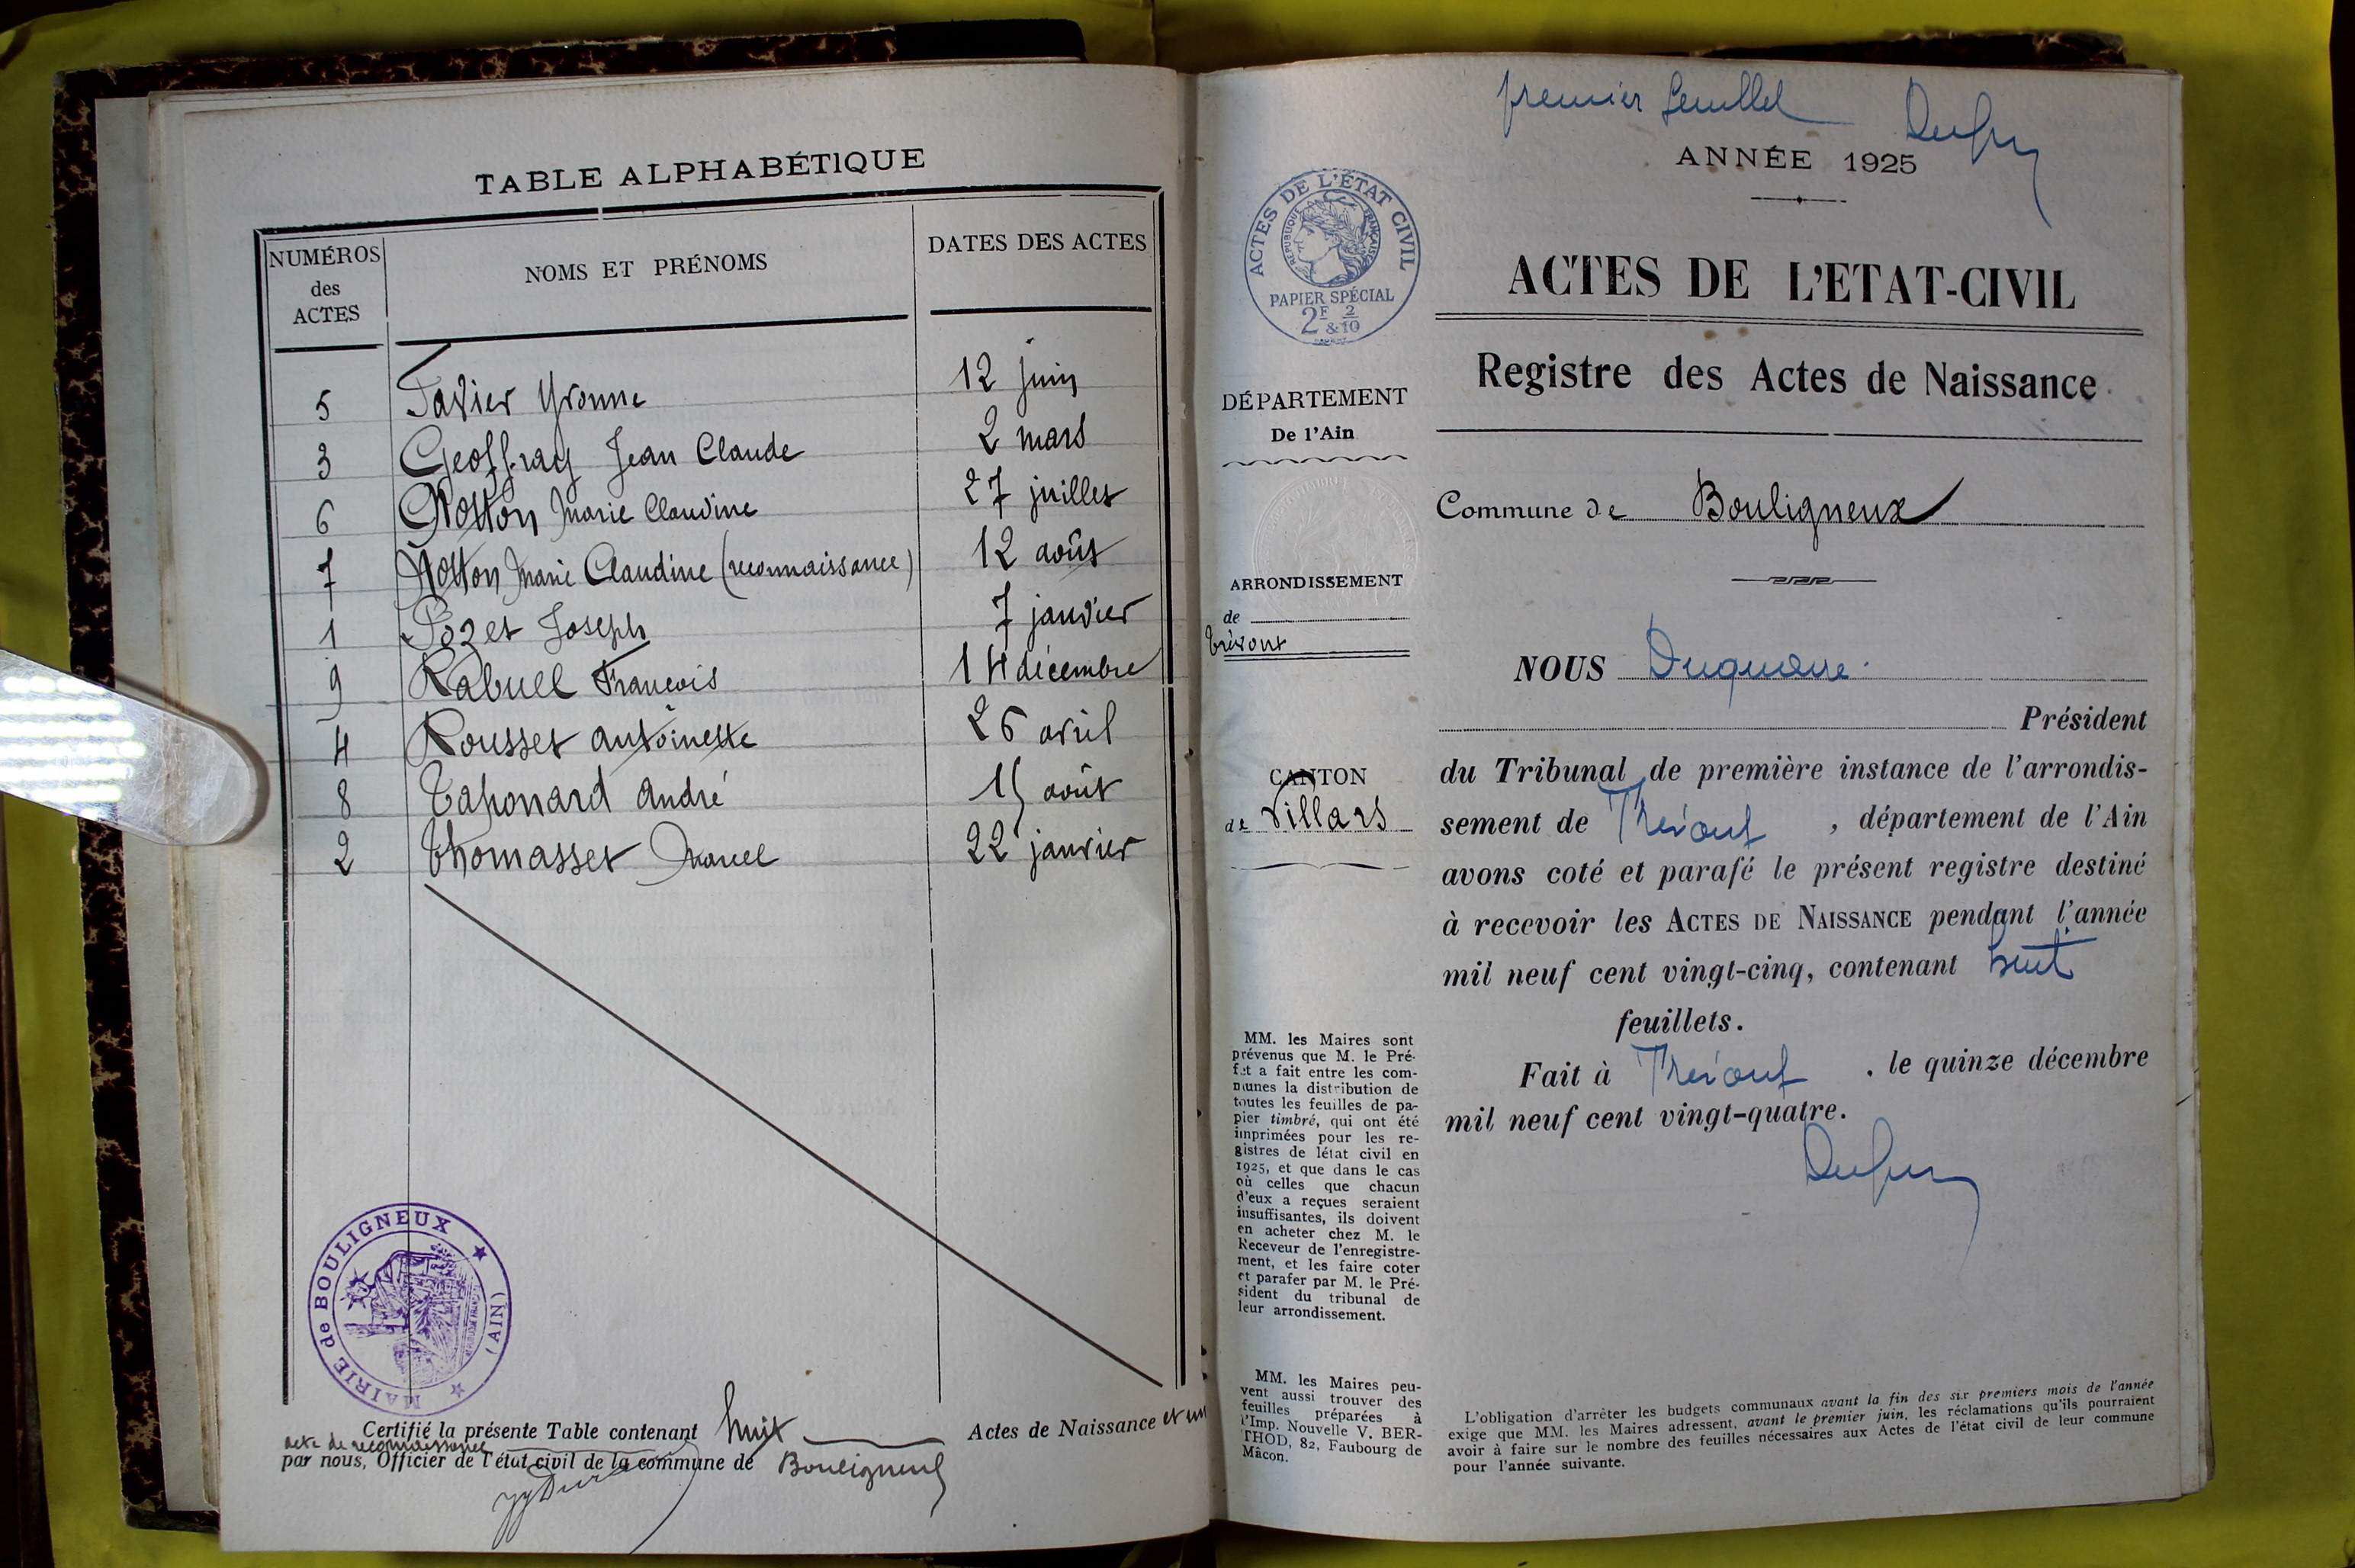 TABLE ALPHABÉTIQUE
NUMÉROS des ACTES
NOMS ET PRÉNOMS
DATES DES ACTES
5 Favier Yvonne 12 juin
3 Geoffray Jean Claude 2 mars
6 Notton Marie Claudine 27 juillet
7 Notton Marie Claudine (reconnaissance) 12 août
1 Pozet Joseph 7 janvier
9 Rabuel François 14 décembre
4 Rousset Antoinette 26 avril
8 Taponard André 15 août
2 Thomasset Marcel 22 janvier
MAIRIE de BOULIGNEUX
(AIN)
Certifié la présente Table contenant huit Actes de Naissance et un
acte de reconnaissance
par nous, Officier de l'état civil de la commune de Bouligneux
premier feuillet
ANNÉE 1925
ACTES DE L'ÉTAT CIVIL
RÉPUBLIQUE FRANÇAISE
PAPIER SPÉCIAL
2F & 2/10
ACTES DE L'ETAT-CIVIL
Registre des Actes de Naissance
DÉPARTEMENT
De l'Ain
Commune de Bouligneux
ARRONDISSEMENT
de
Trévoux
CANTON
de Villars
NOUS
Président
du Tribunal de première instance de l'arrondis-
sement de Trévoux, département de l'Ain
avons coté et parafé le présent registre destiné
à recevoir les ACTES DE NAISSANCE pendant l'année
mil neuf cent vingt-cinq, contenant huit
feuillets.
Fait à Trévoux, le quinze décembre
mil neuf cent vingt-quatre.
MM. les Maires sont
prévenus que M. le Pré-
fet a fait entre les com-
munes la distribution de
toutes les feuilles de pa-
pier timbré, qui ont été
imprimées pour les re-
gistres de létat civil en
1925, et que dans le cas
où celles que chacun
d'eux a reçues seraient
insuffisantes, ils doivent
en acheter chez M. le
Receveur de l'enregistre-
ment, et les faire coter
et parafer par M. le Pré-
sident du tribunal de
leur arrondissement.
MM. les Maires peu-
vent aussi trouver des
feuilles préparées à
l'Imp. Nouvelle V. BER-
THOD, 82, Faubourg de
Mâcon.
L'obligation d'arrêter les budgets communaux avant la fin des six premiers mois de l'année
exige que MM. les Maires adressent, avant le premier juin, les réclamations qu'ils pourraient
avoir à faire sur le nombre des feuilles nécessaires aux Actes de l'état civil de leur commune
pour l'année suivante.